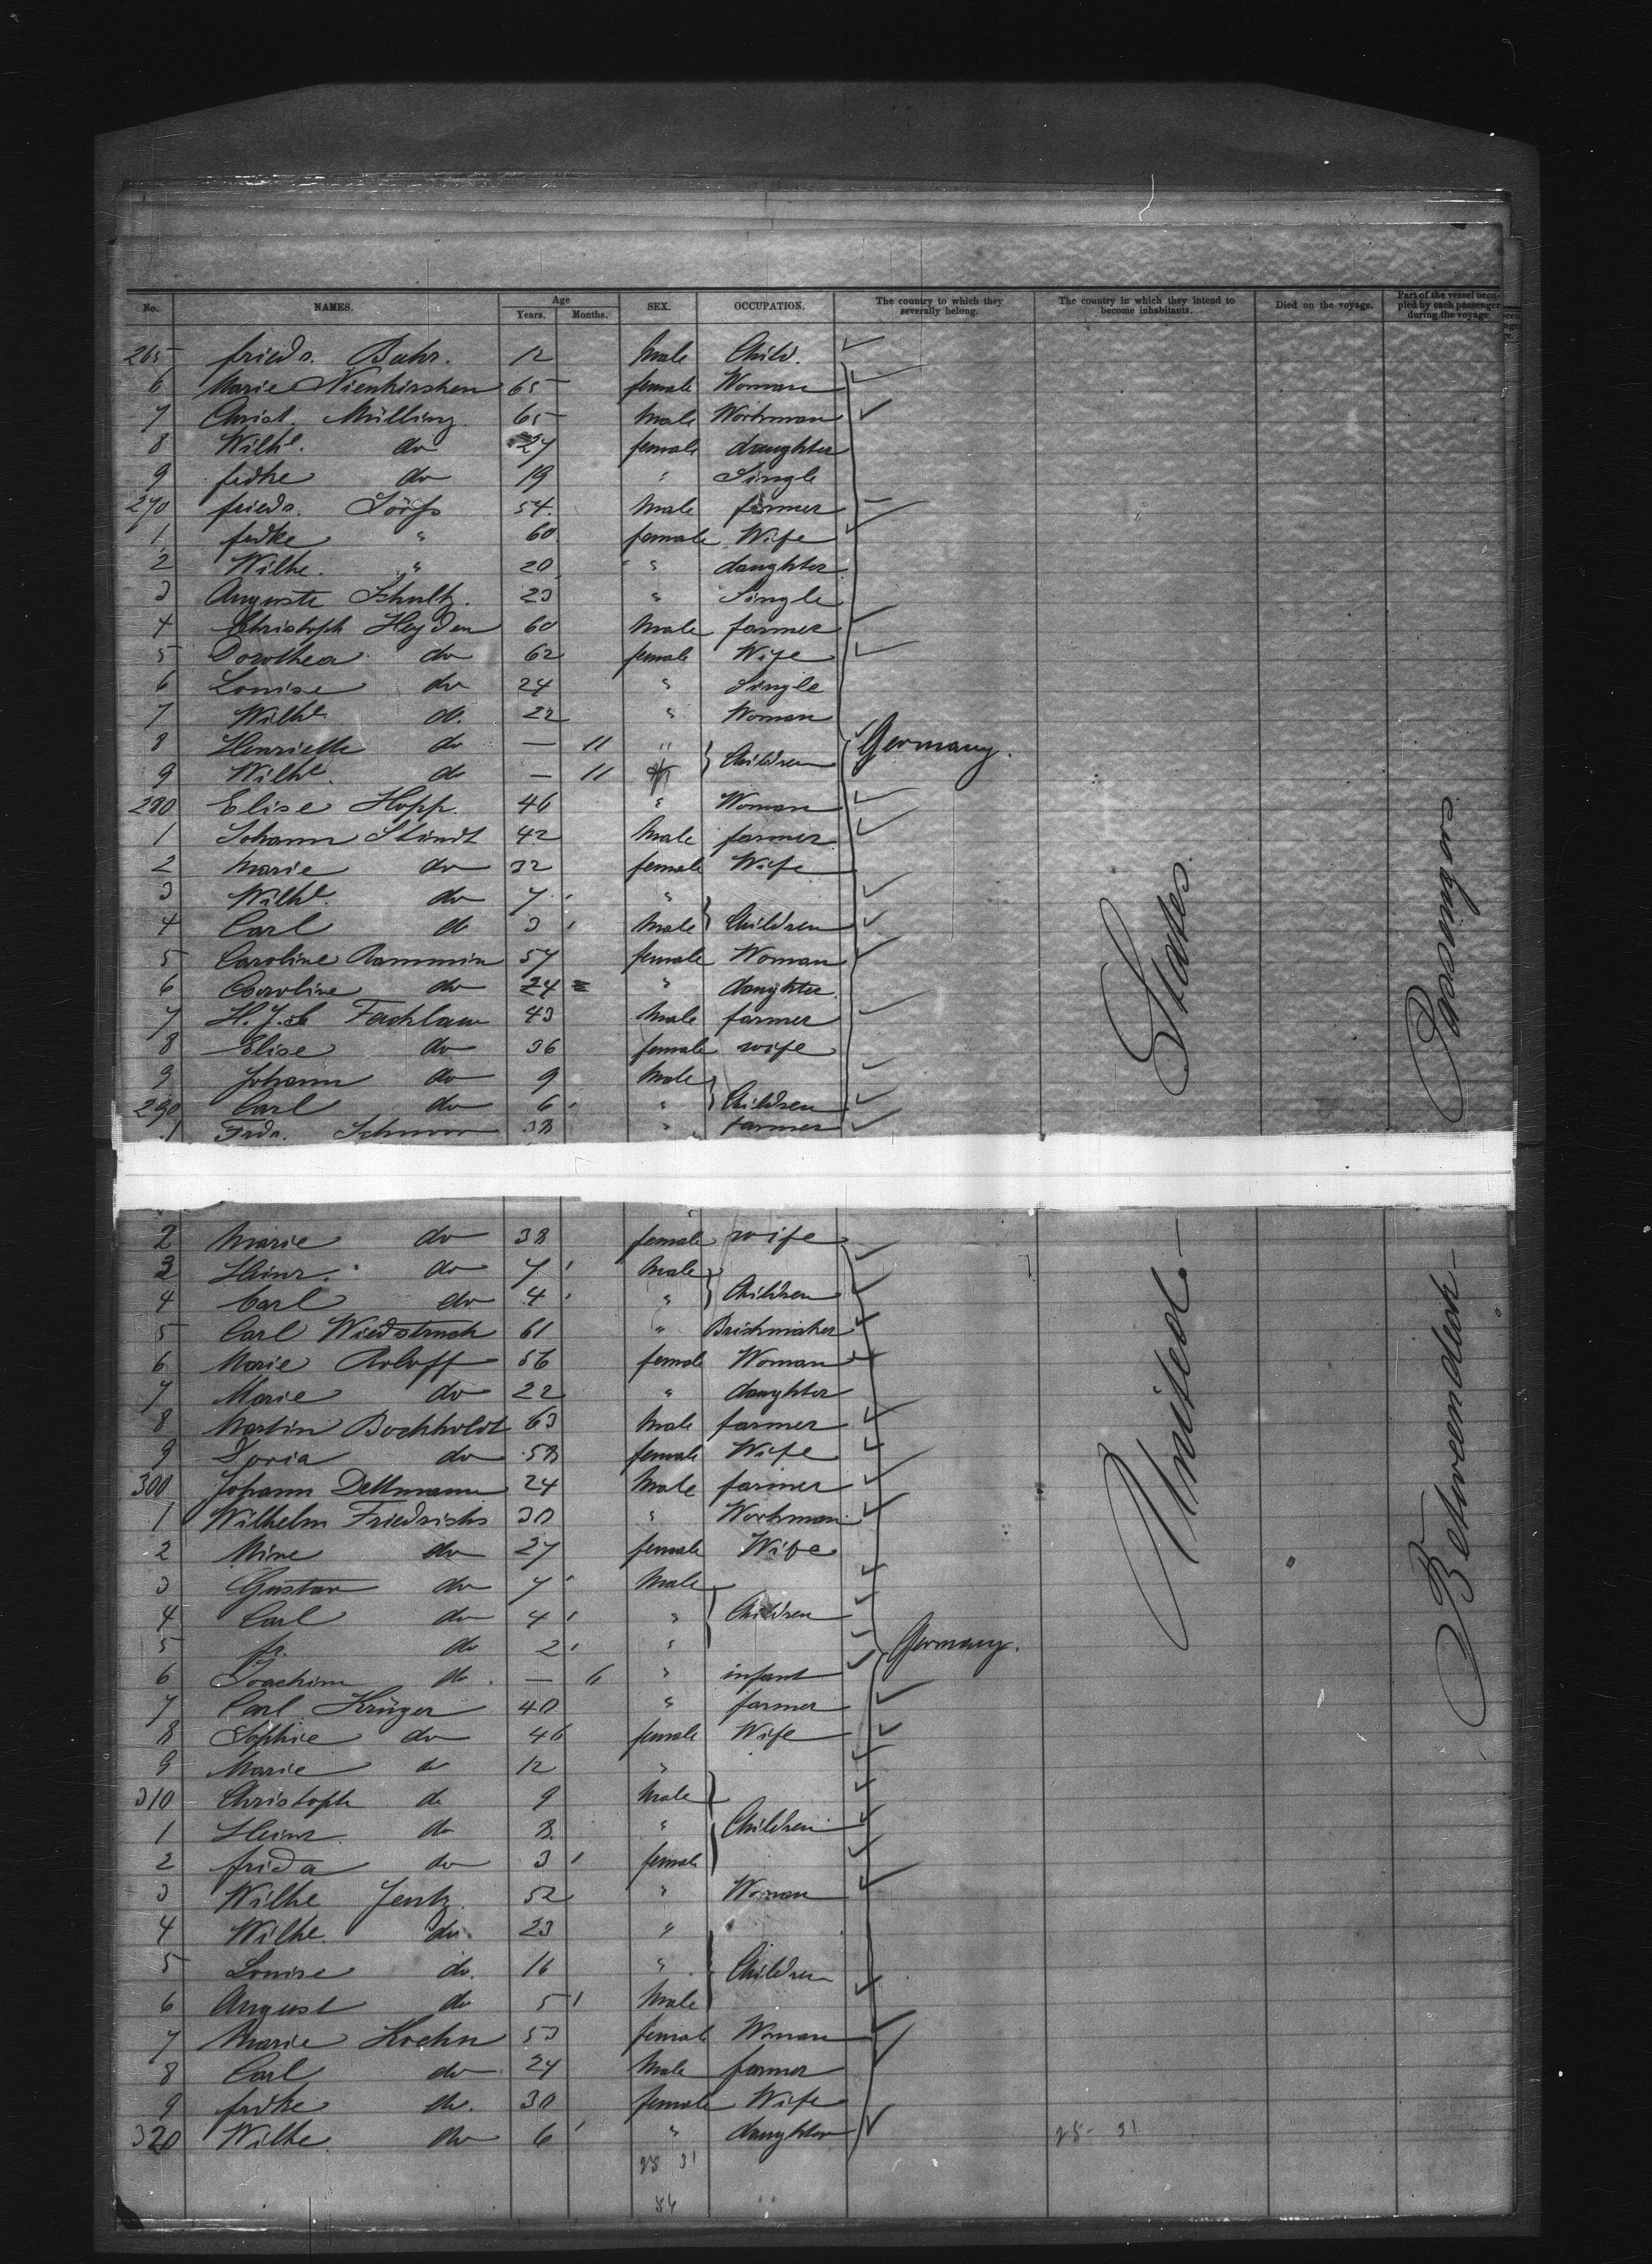 No. NAMES. Age Years. Months. SEX. OCCUPATION. The country to which they severally belong. The country in which they intend to become inhabitants. Died on the voyage. Part of the vessel occupied by each passenger during the voyage.
265 friedr. Buhr. 12 Male Child.
6 Marie Nienkirchen 65 female Woman
7 Christ. Mülling. 65 Male Workman
8 Wilhe. do 27 female daughter
9 fedke do 19 " Single
270 friedr. 54. Male farmer
1 fedke " 60 female Wife
2 Wilhe. " 20 " daughter
3 Auguste Schultz. 23 " Single
4 Christoph Heyden 60 Male farmer
5 Dorothea do 62 female Wife
6 Louise do 24 " Single
7 Wilhe do. 22 " Woman
8 Henriette do — 11 " Children Germany.
9 Wilhe. do — 11
280 Elise Hopp. 46 " Woman
1 Johann Stindt 42 Male farmer
2 Marie do 32 female Wife
3 Wilhe. do 7 "
4 Carl do 3 Male Children
5 Caroline Rammin 57 female Woman
6 Caroline do 24 " daughter.
7 43 Male farmer
8 Elise do 36 female wife
9 Johann do 9 Male
290 Carl do 6 " Children
1 Frdr. Schnoor 38 " farmer
2 Marie do 38 female wife
3 Heinr. do 7 Male
4 Carl do 4 " Children
5 Carl Wiedstruck 61 " Brickmaker
6 Marie Roloff 56 female Woman
7 Marie do 22 " daughter
8 Martin Bochholdt 63 Male farmer
9 Doria do 58 female Wife
300 Johann Dettmann 24 Male farmer
1 Wilhelm Friedrichs 30 " Workman
2 Mine do 27 female Wife
3 Gustav do 7 Male
4 Carl do 4 " Children
5 fr. do 2 " Germany.
6 Joachim do — 6 " infant
7 Carl Krüger 40 " farmer
8 Sophie do 46 female Wife
9 Marie do 12 "
310 Christoph do 9 Male
1 Heinr. do 8. " Children
2 frieda do 3 female
3 Wilhe Jentz. 52 " Woman
4 Wilhe. do. 23 "
5 Louise do. 16 " Children
6 August do 5 Male
7 Marie Koehn 53 female Woman
8 Carl do 24 Male farmer
9 fedke do. 30 female Wife
320 Wilhe do 6 " daughter
28 31
28 - 31
84
United States
Betweendeck Passengers